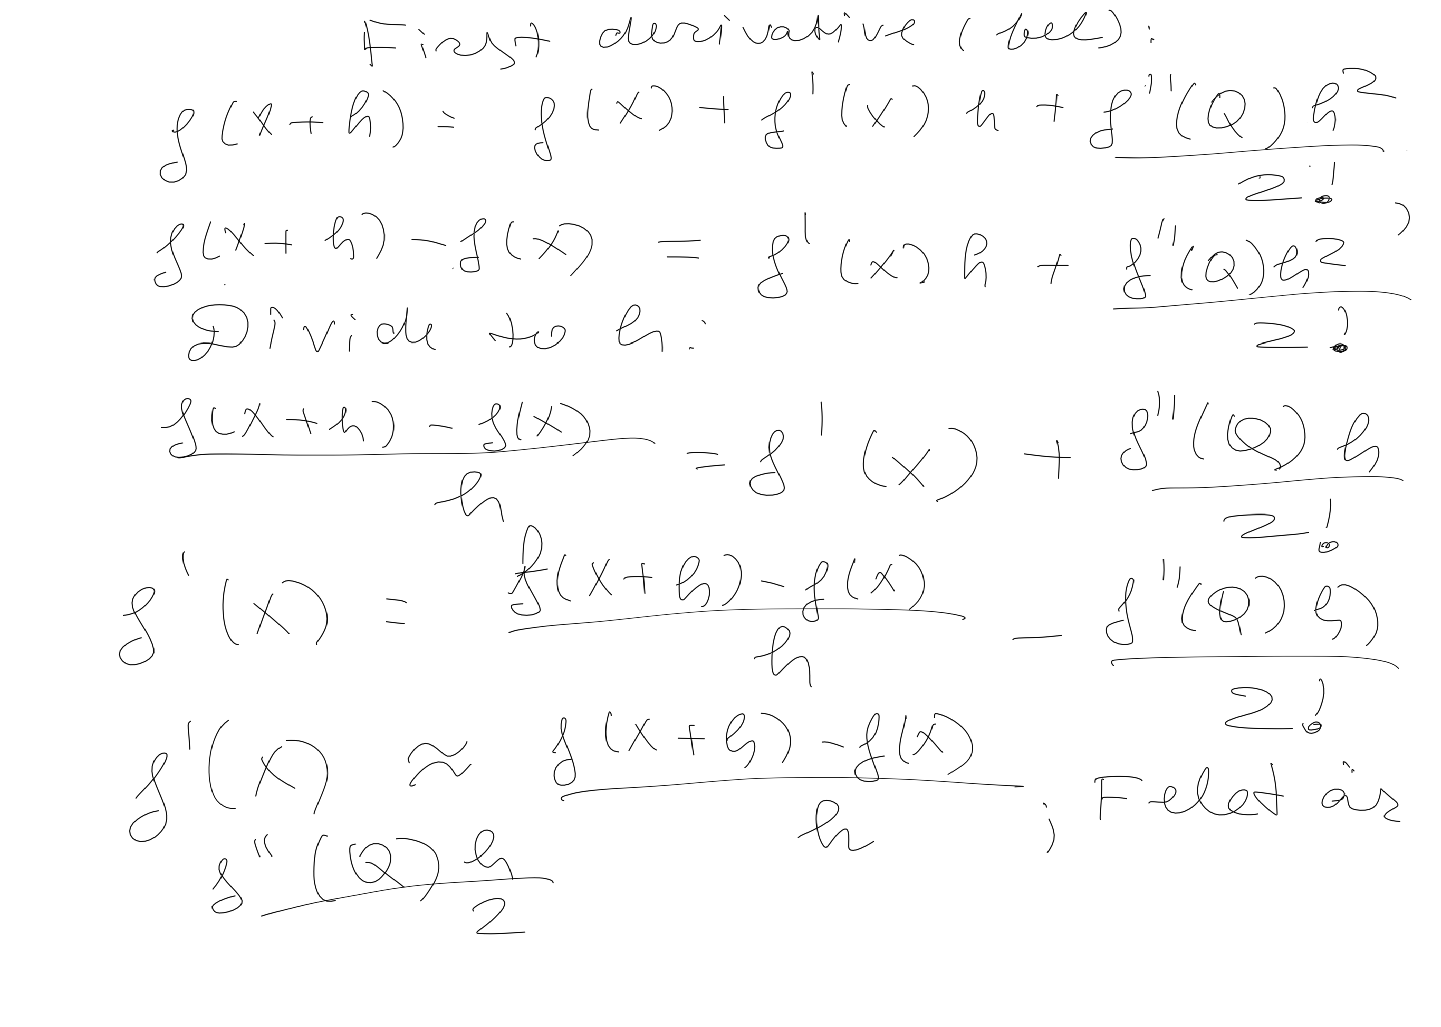 First derivative (fel):
f(x+h) = f(x) + f'(x) h + f''(Q) h²/2!,
f(x+h) - f(x) = f'(x) h + f''(Q)h²/2!
Divide to h:
f(x+h) - f(x)/h = f'(x) + f''(Q) h/2!
f'(x) = f(x+h) - f(x)/h - f''(Q) h/2!
f'(x) ≈ f(x+h) - f(x)/h ; Felet är
f''(Q) h/2